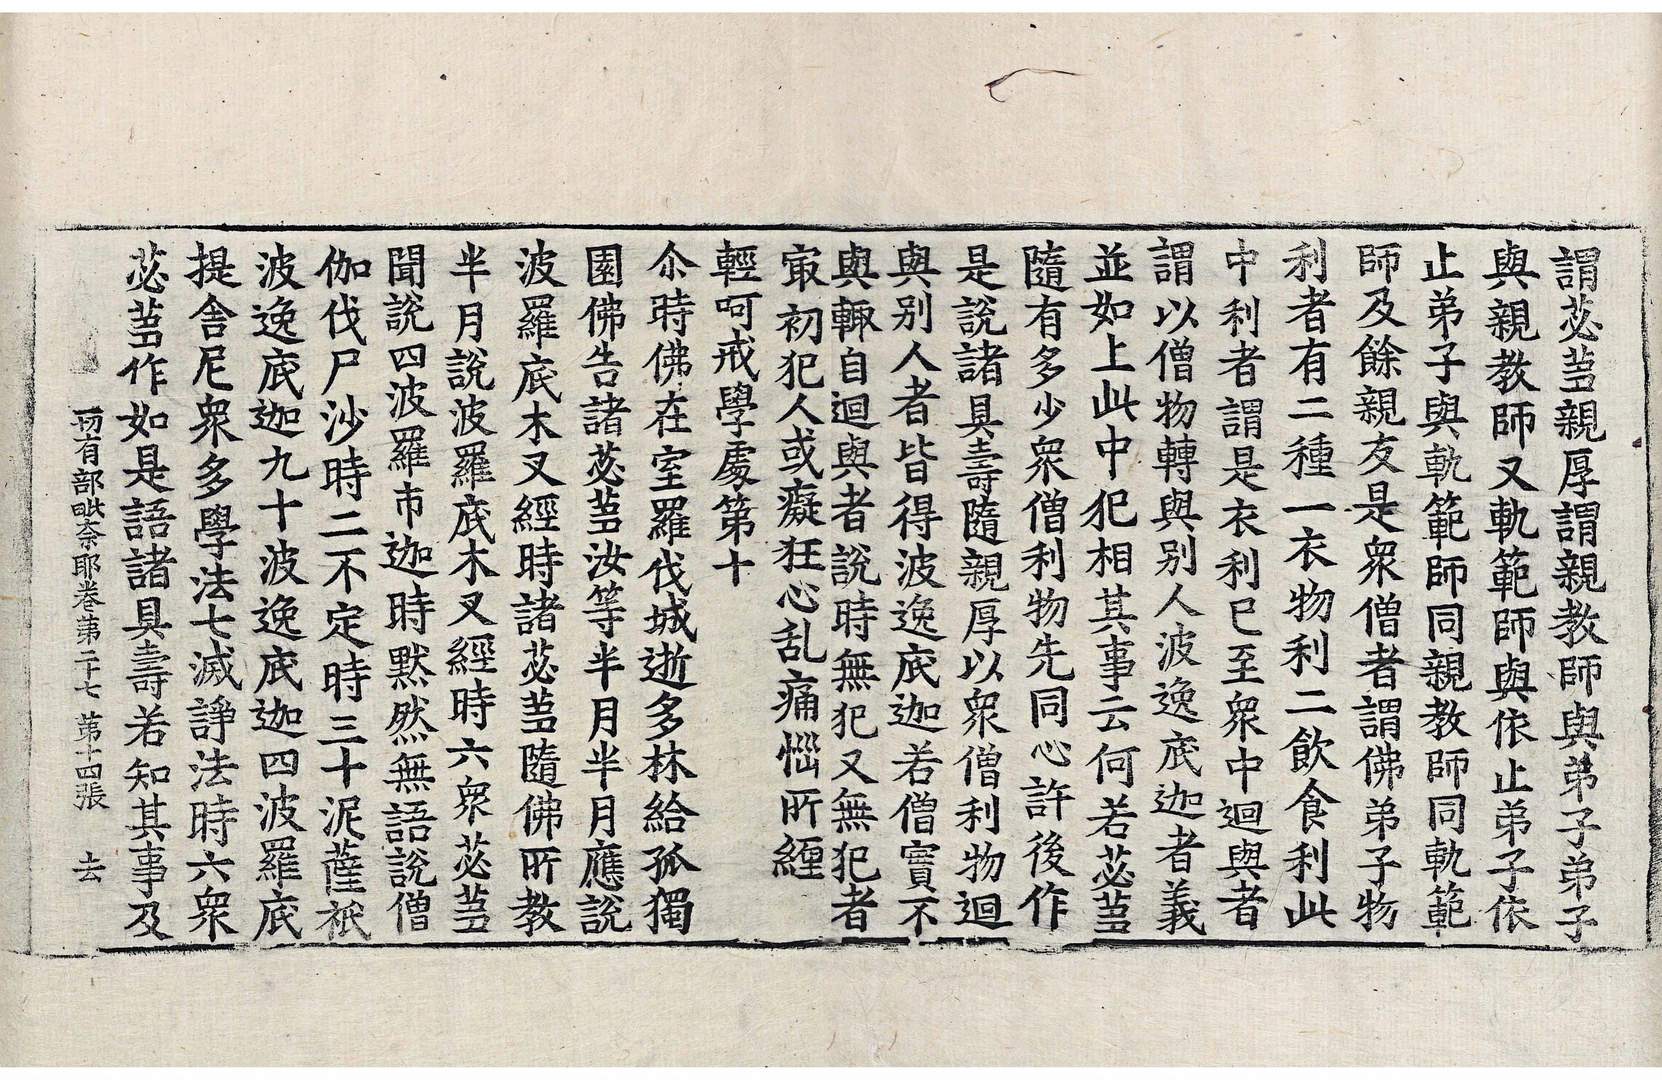 謂苾蒭親厚謂親教師與弟子弟子
與親教師又軌範師與依止弟子依
止弟子與軌範師同親教師同軌範
師及餘親友是衆僧者謂佛弟子物
利者有二種一衣物利二飲食利此
中利者謂是衣利已至衆中迴與者
謂以僧物轉與别人波逸底迦者義
並如上此中犯相其事云何若苾蒭
隨有多少衆僧利物先同心許後作
是說諸具壽隨親厚以衆僧利物迴
與别人者皆得波逸底迦若僧實不
與輙自迴與者說時無犯又無犯者
㝡初犯人或癡狂心乱痛惱所纏
輕呵戒學處第十
尒時佛在室羅伐城逝多林給孤獨
園佛告諸苾蒭汝等半月半月應說
波羅底木叉經時諸苾蒭隨佛所教
半月說波羅底木叉經時六衆苾蒭
聞說四波羅市迦時默然無語說僧
伽伐尸沙時二不定時三十泥薩祇
波逸底迦九十波逸底迦四波羅底
提舍尼衆多學法七滅諍法時六衆
苾蒭作如是語諸具壽若知其事及
有部毗奈耶卷第二十七 第十四張 去